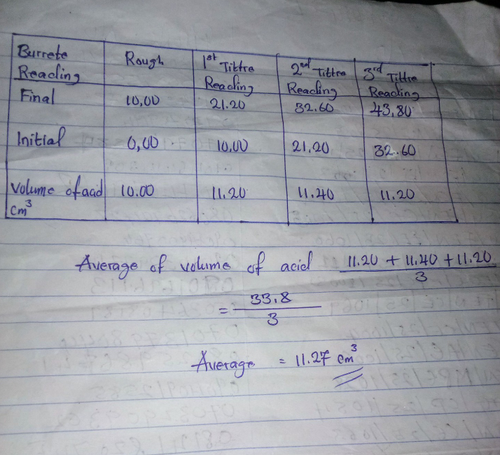 Burrete Reading Rough 1st Tittre Reading 2nd Tittre Reading 3rd Tittre Reading
Final 10.00 21.20 32.60 43.80
Initial 0.00 10.00 21.20 32.60
Volume of acid cm³ 10.00 11.20 11.40 11.20
Average of volume of acid 11.20 + 11.40 + 11.20
3
= 33.8
3
Average = 11.27 cm³